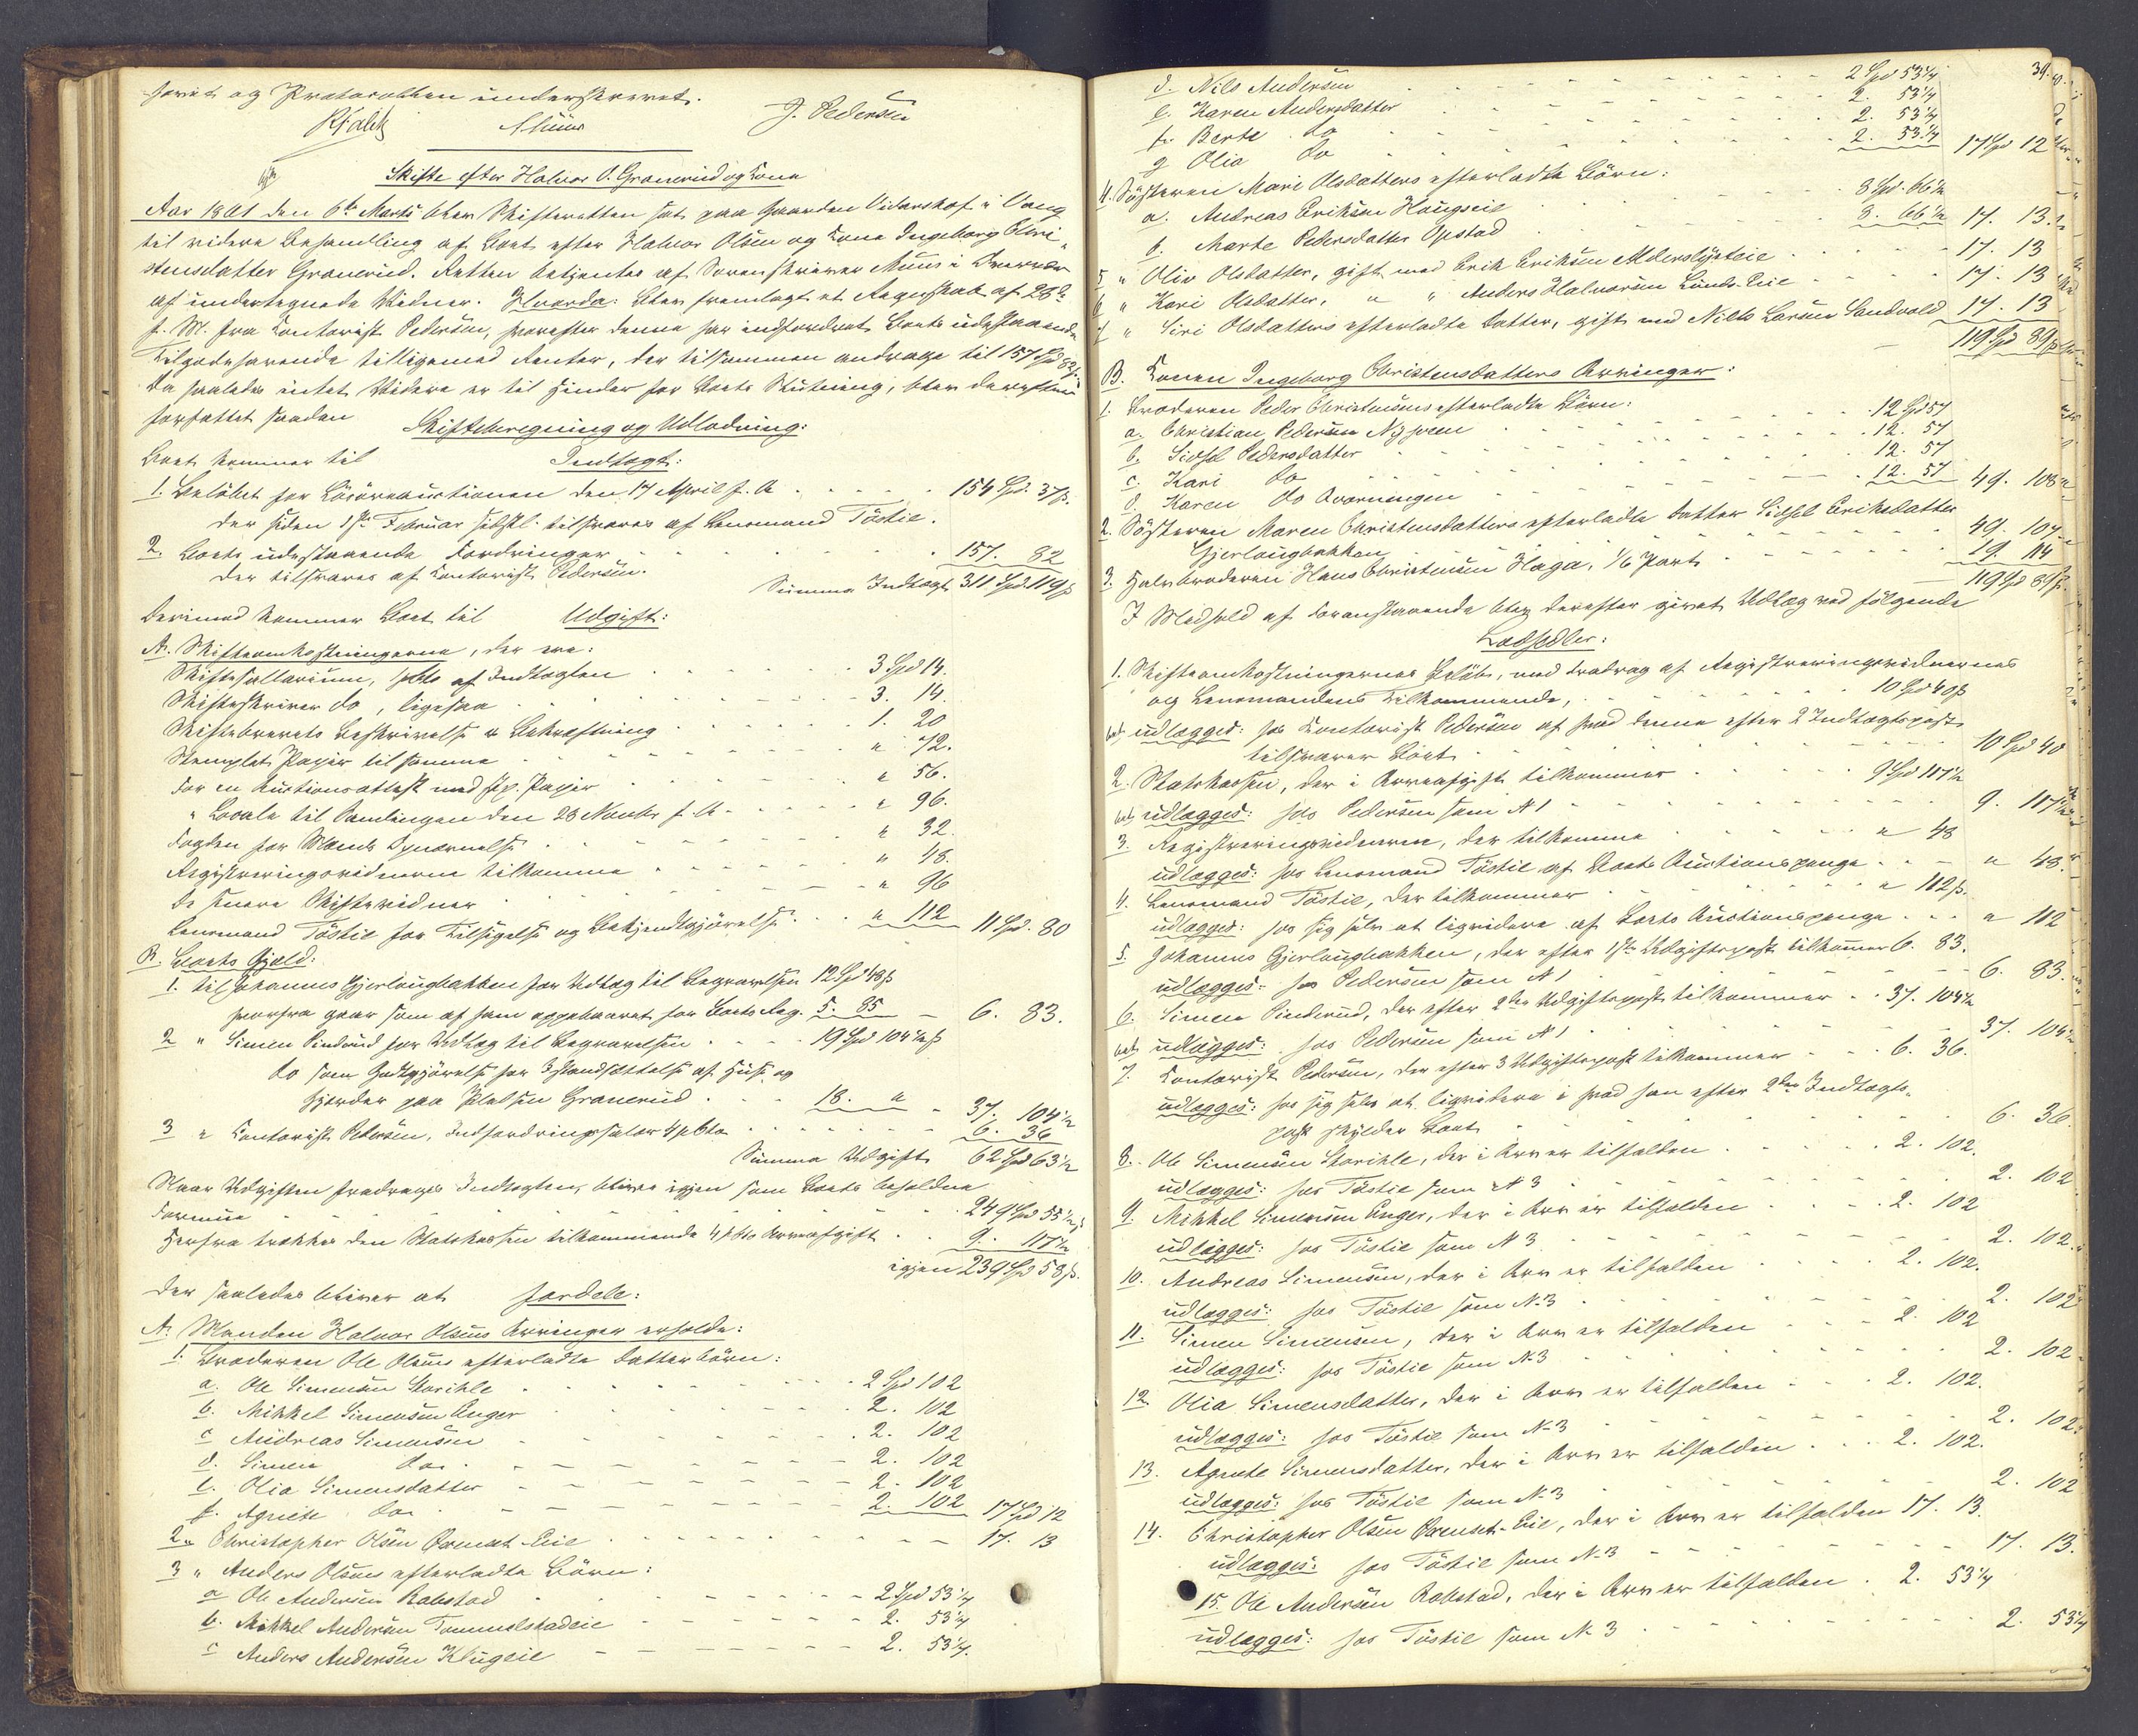 hævet og Protocollen underskrevet.
J. Pedersen
Skifte efter Halvor O. Granerud og Kone
Aar 1861 den 6te Marts blev Skifteretten sat paa Gaarden Vidarshof i Vang
til videre Behandling af Boet efter Halvor Olsen og Kone Ingeborg Chri-
stensdatter Granerud. Retten betjentes af Sorenskriver Muus i Overvær
af undertegnede Vidner. Hvorda: blev fremlagt et Regnskab af 28de
f. M. fra Contorist Pedersen, hvorefter denne har indfordret Boets udestaaende
Tilgodehavende tilligemed Renter, der tilsammen andrage til 157 Spd 82 s.
Da saaledes intet Videre er til Hinder for Boets Slutning, blev derefter
forfattet saadan
Skifteberegning og Udlodning:
Boet kommer til Indtægt:
1. Beløbet for Løsøreauctionen den 17 April f. A. 154 Spd. 37 s.
der siden 1ste Februar tilsvares af Lensmand Töstie.
2. Boets udestaaende Fordringer 157. 82
der tilsvares af Contorist Pedersen.
Summa Indtægt 311 Spd. 119 s
Derimod kommer Boet til Udgift:
A. Skifteomkostningerne, der ere:
Skiftesallarium, af Indtægten 3 Spd 14.
Skifteskriver do, ligesaa 3. 14.
Skiftebrevets Beskrivelse & Bekræftning 1. 20
Stemplet Papir til samme " 72.
For en Auctionsattest med stp. Papir " 56.
" Locale til Samlingen den 28 Novbr f. A. " 96.
Fogden for Mænds Opnævnelse " 32.
Registreringsvidnerne tilkomme " 48.
De senere Skiftevidner " 96
Lensmand Töstie for Tilsigelse og Bekjendtgjørelse " 112 11 Spd. 80
B. Boets Gjæld:
1. til Johannes Gjerlaugbakken for Udlæg til Begravelsen 12 Spd 48 s
hvorfra gaar som af ham oppebaaret for Boets Reg. 5. 85 6. 83.
2 " Simen Rinderud for Udlæg til Begravelsen 19 Spd 104 1/2 s
do som Godtgjørelse for Istandsættelse af Huse og
Gjerder paa Pladsen Granerud 18. " 37. 104 1/2
3 " Contorist Pedersen, Indfordringssalær 4 pCto 6. 36
Summa Udgift 62 Spd 63 1/2
Naar Udgiften fradrages Indtægten, bliver igjen som Boets beholdne
Formue 249 Spd 55 1/2 s
Herfra trækkes den Statskassen tilkommende 4 pCto Arveafgift 9. 117 1/2
igjen 239 Spd 58 s.
der saaledes bliver at fordele:
A. Manden Halvor Olsens Arvinger erholde:
1. Broderen Ole Olsens efterladte Datterbörn:
a. Ole Simensen Storihle 2 Spd 102
b. Mikkel Simensen Anger 2. 102
c Andreas Simensen 2. 102
d. Simen do. 2. 102
e. Olia Simensdatter 2. 102
f. Agnete do. 2. 102 17 Spd 12
2 " Christopher Olsen Ormset-Eie 17. 13
3 " Anders Olsens efterladte Börn:
a Ole Andersen Rabstad 2 Spd 53 1/4
b. Mikkel Andersen Tommelstadeie 2. 53 1/4
c Anders Andersen Klugeie 2. 53 1/4.
39.
d. Nils Andersen 2 Spd 53 1/4
e. Karen Andersdatter 2. 53 1/4
f. Berte do 2. 53 1/4
g Olia do 2. 53 1/4 17 Spd 12
4. Søsteren Mari Olsdatters efterladte Börn:
a. Andreas Eriksen Haugseie 8 Spd. 66 1/2
b. Marte Pedersdatter Opstad 8. 66 1/2 17. 13
5 " Oliv Olsdatter, gift med Erik Eriksen Alderslysteie 17. 13
6 " Kari Olsdatter, " " Anders Halvorsen Lunds-Eie 17. 13
7 " Siri Olsdatters efterladte Datter, gift med Niels Larsen Sandvold 17. 13
119 Spd 89 s
B. Konen Ingeborg Christensdatters Arvinger:
1. Broderen Peder Christensens efterladte Börn:
a. Christian Pedersen 12 Spd 57
b. Sidsel Pedersdatter 12. 57
c. Kari do 12. 57
d. Karen do Kværningen 12. 57 49. 108
2. Søsteren Maren Christensdatters efterladte Datter Sidsel Eriksdatter
Gjerlaugbakken 49. 107
3. Halvbroderen Hans Christensen Haga, 1/6 Part 19. 114
119 Spd 89 s.
I Medhold af Foranstaaende blev derefter givet Udlæg ved følgende
Lodsedler:
1. Skifteomkostningernes Beløb, med Fradrag af Registreringsvidnernes
og Lensmandens Tilkommende, 10 Spd 40 s
udlægges: hos Contorist Pedersen af hvad denne efter 2 Indtægtspost
tilsvarer Boet 10 Spd 40
2. Statskassen, der i Arveafgift tilkommer 9 Spd 117 1/2
udlægges: hos Pedersen som N 1 9. 117 1/2
3. Registreringsvidnerne, der tilkomme " 48
udlægges: hos Lensmand Töstie af Boets Auctionspenge " 48.
4. Lensmand Töstie, der tilkommer " 112 s.
udlægges: hos sig selv at liqvidere af Boets Auctionspenge " 112
5. Johannes Gjerlaugbakken, der efter 1ste Udgiftspost tilkommer 6. 83.
udlægges: hos Pedersen som N 1 6. 83.
6. Simen Rinderud, der efter 2den Udgiftspost tilkommer 37. 104 1/2
udlægges: hos Pedersen som N 1 37. 104 1/2
7. Contorist Pedersen, der efter 3 Udgiftspost tilkommer 6. 36.
udlægges: hos sig selv at liqvidere i hvad han efter 2den Indtægts-
post skylder Boet 6. 36.
8. Ole Simensen Storihle, der i Arv er tilfalden 2. 102.
udlægges: hos Töstie som N 3 2. 102
9. Mikkel Simensen Anger, der i Arv er tilfalden 2. 102
udlægges: hos Töstie som N 3 2. 102.
10. Andreas Simensen, der i Arv er tilfalden 2. 102.
udlægges: hos Töstie som N 3 2. 102
11. Simen Simensen, der i Arv er tilfalden 2. 102
udlægges: hos Töstie som N 3 2. 102
12. Olia Simensdatter, der i Arv er tilfalden 2. 102.
udlægges: hos Töstie som N 3 2. 102
13. Agnete Simensdatter, der i Arv er tilfalden 2. 102.
udlægges: hos Töstie som N 3 2. 102
14. Christopher Olsen Ormset-Eie, der i Arv er tilfalden 17. 13.
udlægges: hos Töstie som N 3 17. 13.
15. Ole Andersen Rabstad, der i Arv er tilfalden 2. 53 1/4
udlægges: hos Töstie som N 3 2. 53 1/4